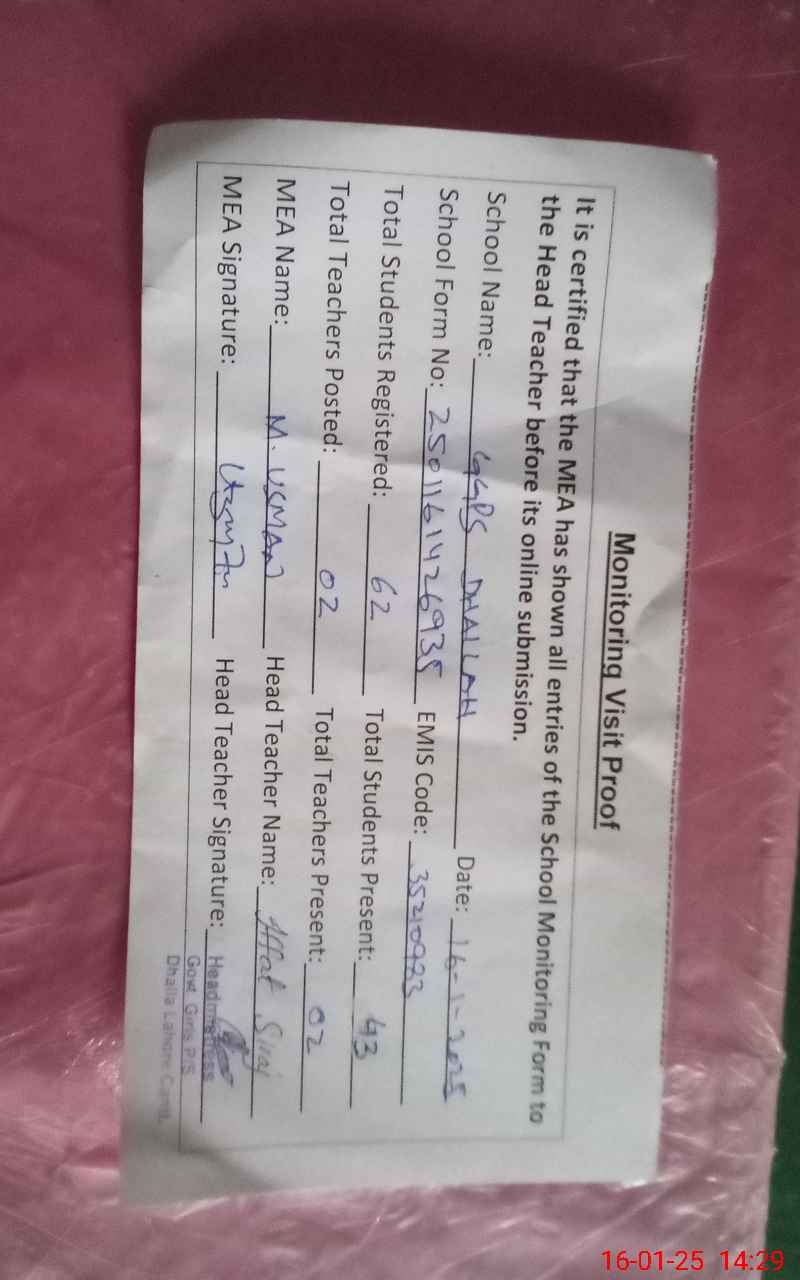 Monitoring Visit Proof
It is certified that the MEA has shown all entries of the School Monitoring Form to
the Head Teacher before its online submission.
School Name: GGPS DHALLAH Date: 16-1-2025
School Form No: 250116142693S EMIS Code: 35210923
Total Students Registered: 62 Total Students Present: 43
Total Teachers Posted: 02 Total Teachers Present: 02
MEA Name: M. USMAN Head Teacher Name: Iffat
MEA Signature: Head Teacher Signature:
Headmistress
Govt. Girls P/S
Dhalla Lahore Cantt.
16-01-25 14:29